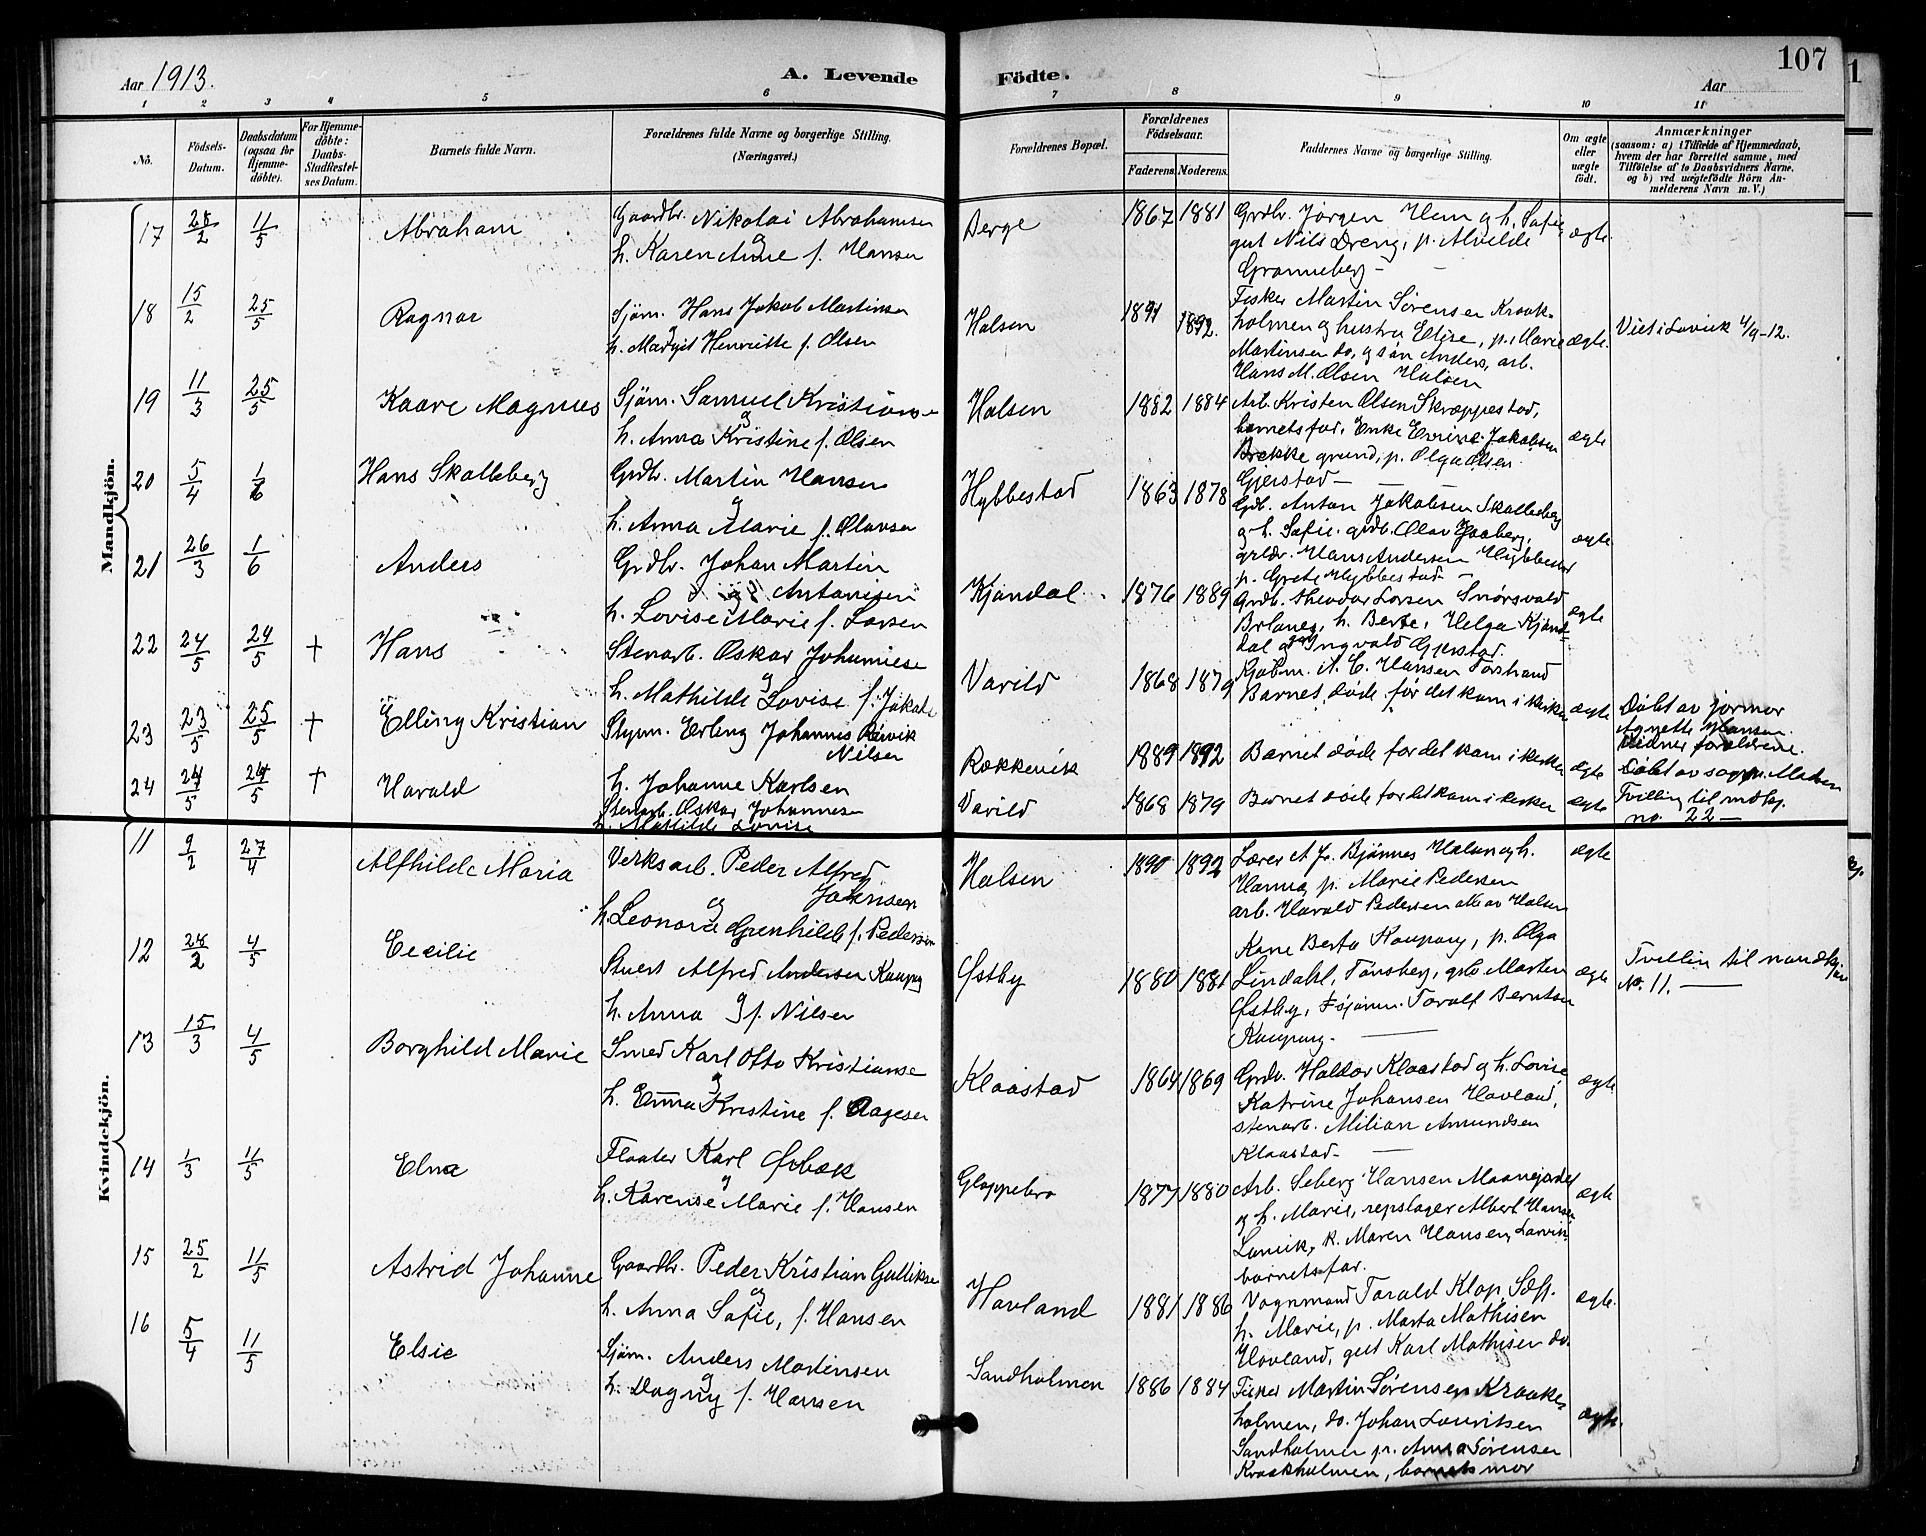 Aar 1913.
A. Levende
Födte.
107
Aar
1 2 3 4 5 6 7 8 9 10 11
No.
Födsels-
Datum.
Daabsdatum
(ogsaa for
Hjemme-
döbte).
For Hjemme-
döbte:
Daabs-
Stadfæstel-
ses Datum.
Barnets fulde Navn.
Forældrenes fulde Navne og borgerlige Stilling.
(Næringsvei.)
Forældrenes Bopæl.
Forældrenes
Födselsaar.
Faderens.
Moderens.
Faddernes Navne og borgerlige Stilling.
Om ægte
eller
uægte
födt.
Anmærkninger
(saasom: a) i Tilfælde af Hjemmedaab,
hvem der har forrettet samme, med
Tilföielse af to Daabsvidners Navne,
og b) ved uægtefödte Börn An-
melderens Navn m. V.)
Mandkjön.
17 28/2 11/5 Abraham
Gaardbr. Nikolai Abrahamsen
og
h. Karen Anne f. Hansen
Berge 1867 1881
Grdbr. Jørgen Hem og h. Sofie,
gut Nils Dreng, p. Alvelde
Granneberg —
ægte.
18 15/2 25/5 Ragnar
Sjøm. Hans Jakob Martinsen
og
h. Margit Henriette f. Olsen
Halsen 1891 1892.
Fisker Martin Sørensen Kraak-
holmen og hustru Elise, p. Marie
Martinsen do, og søn Anders, arb.
Hans M. Olsen Halsen
ægte.
Viet i Larvik 4/9-12.
19 11/3 25/5 Kaare Magnus
Sjøm. Samuel Kristians
og
h. Anna Kristine f. Olsen
Halsen 1882 1884
Arb. Kristen Olsen Skræppestad,
barnets far, Enke Emine Jakobsen
Brekke grund, p. Olga Olsen
Gjerstad —
ægte
20 5/4 1/6 Hans Skalleberg
Grdbr. Martin Hansen
og
h. Anna Marie f. Olavsen
Hybbestad 1863 1878
Gdb. Anton Jakobsen Skalleberg
og h. Sofie. grdb. Olav Haaberg,
grdbr. Hans Andersen Hybbestad
p. Grete Hybbestad —
ægte
21 26/3 1/6 Anders
Grdbr. Johan Martin
Antonisen
og
h. Lovise Marie f. Larsen
Kjøndal 1876 1889
Grdb. Theodor Larsen Snørsvald
Brlanes, h. Berte, Helga Kjøn-
dal og Ingvald Gjerstad.
ægte
22 24/5 24/5 + Hans
Stenarb. Oskar Johannese
og
h. Mathilde Lovise f. Jakob
Varild 1868 1879
Kjøbm. A. C. Hansen Torstrand
Barnet døde før det kom i kirken
ægte
23 23/5 25/5 + Elling Kristian
Styrm. Erling Johannes Rørvik
Nilsen
h. Johanne Karlsen
Rækkevik 1889 1892
Barnet døde før det kom i kirken
ægte
Døbt av jormor
Agnette Hansen.
Vidner forældrene.
24 24/5 24/5 + Harald
Stenarb. Oskar Johannesen
h. Mathilde Lovise
Varild 1868 1879
Barnet døde før det kom i kirken
ægte
Døbt av sogpr. Madsen
Tvilling til mdkj.
no. 22 —
Kvindekjön.
11 9/2 27/4 Alfhilde Maria
Verksarb. Peder Alfred
Johnsen
og
h. Leonora Grenhilde f. Pedersen
Halsen 1890 1892
Lærer A. Fr. Bjønnes Halsen og h.
Hanna, p. Marie Pedersen
arb. Harald Pedersen alle av Halsen
ægte
12 28/2 4/5 Cecilie
Stuert Alfred Andersen Kaupang
og
h. Anna f. Nilsen
Østby 1880 1881
Kone Berta Kaupang, p. Olga
Lindahl, Tønsberg, grb. Marten
Østby, sjøm. Toralf Berntsen
Kaupang. —
ægte
Tvilling til mandkjøn
No. 11. —
13 15/3 4/5 Borghild Marie
Smed Karl Otto Kristianse
og
h. Emma Kristine f. Aagesen
Klaastad 1864 1869
Grdb. Haldor Klaastad og h. Lovise,
Katrine Johansen Havland,
stenarb. Milian Amundsen
Klaastad. —
ægte
14 1/3 11/5 Elna
Fløater Karl Ørbæk
og
h. Karense Marie f. Hansen
Gloppebro 1877 1880
Arb. Seberg Hansen Maanejordet
og h. Marie, repslager Albert Hansen
Larvik, k. Maren Hansen, Larvik
barnets far.
ægte
15 25/2 11/5 Astrid Johanne
Gaardbr. Peder Kristian Gulliksen
og
h. Anna Sofie, f. Hansen
Havland 1881 1886
Vognmand Torald Klop, Sdfj.
h. Marie, p. Marta Mathisen
Hovland, gut Karl Mathisen do.
ægte.
16 5/4 11/5 Elsie
Sjøm. Anders Martinsen
og
h. Dagny f. Hansen
Sandholmen 1886 1884
Fisker Martin Sørensen Kraake-
holmen, do. Johan Lauritsen
Sandholmen pr. Anna Sørensen
Kraakholmen, barnets mor
ægte.